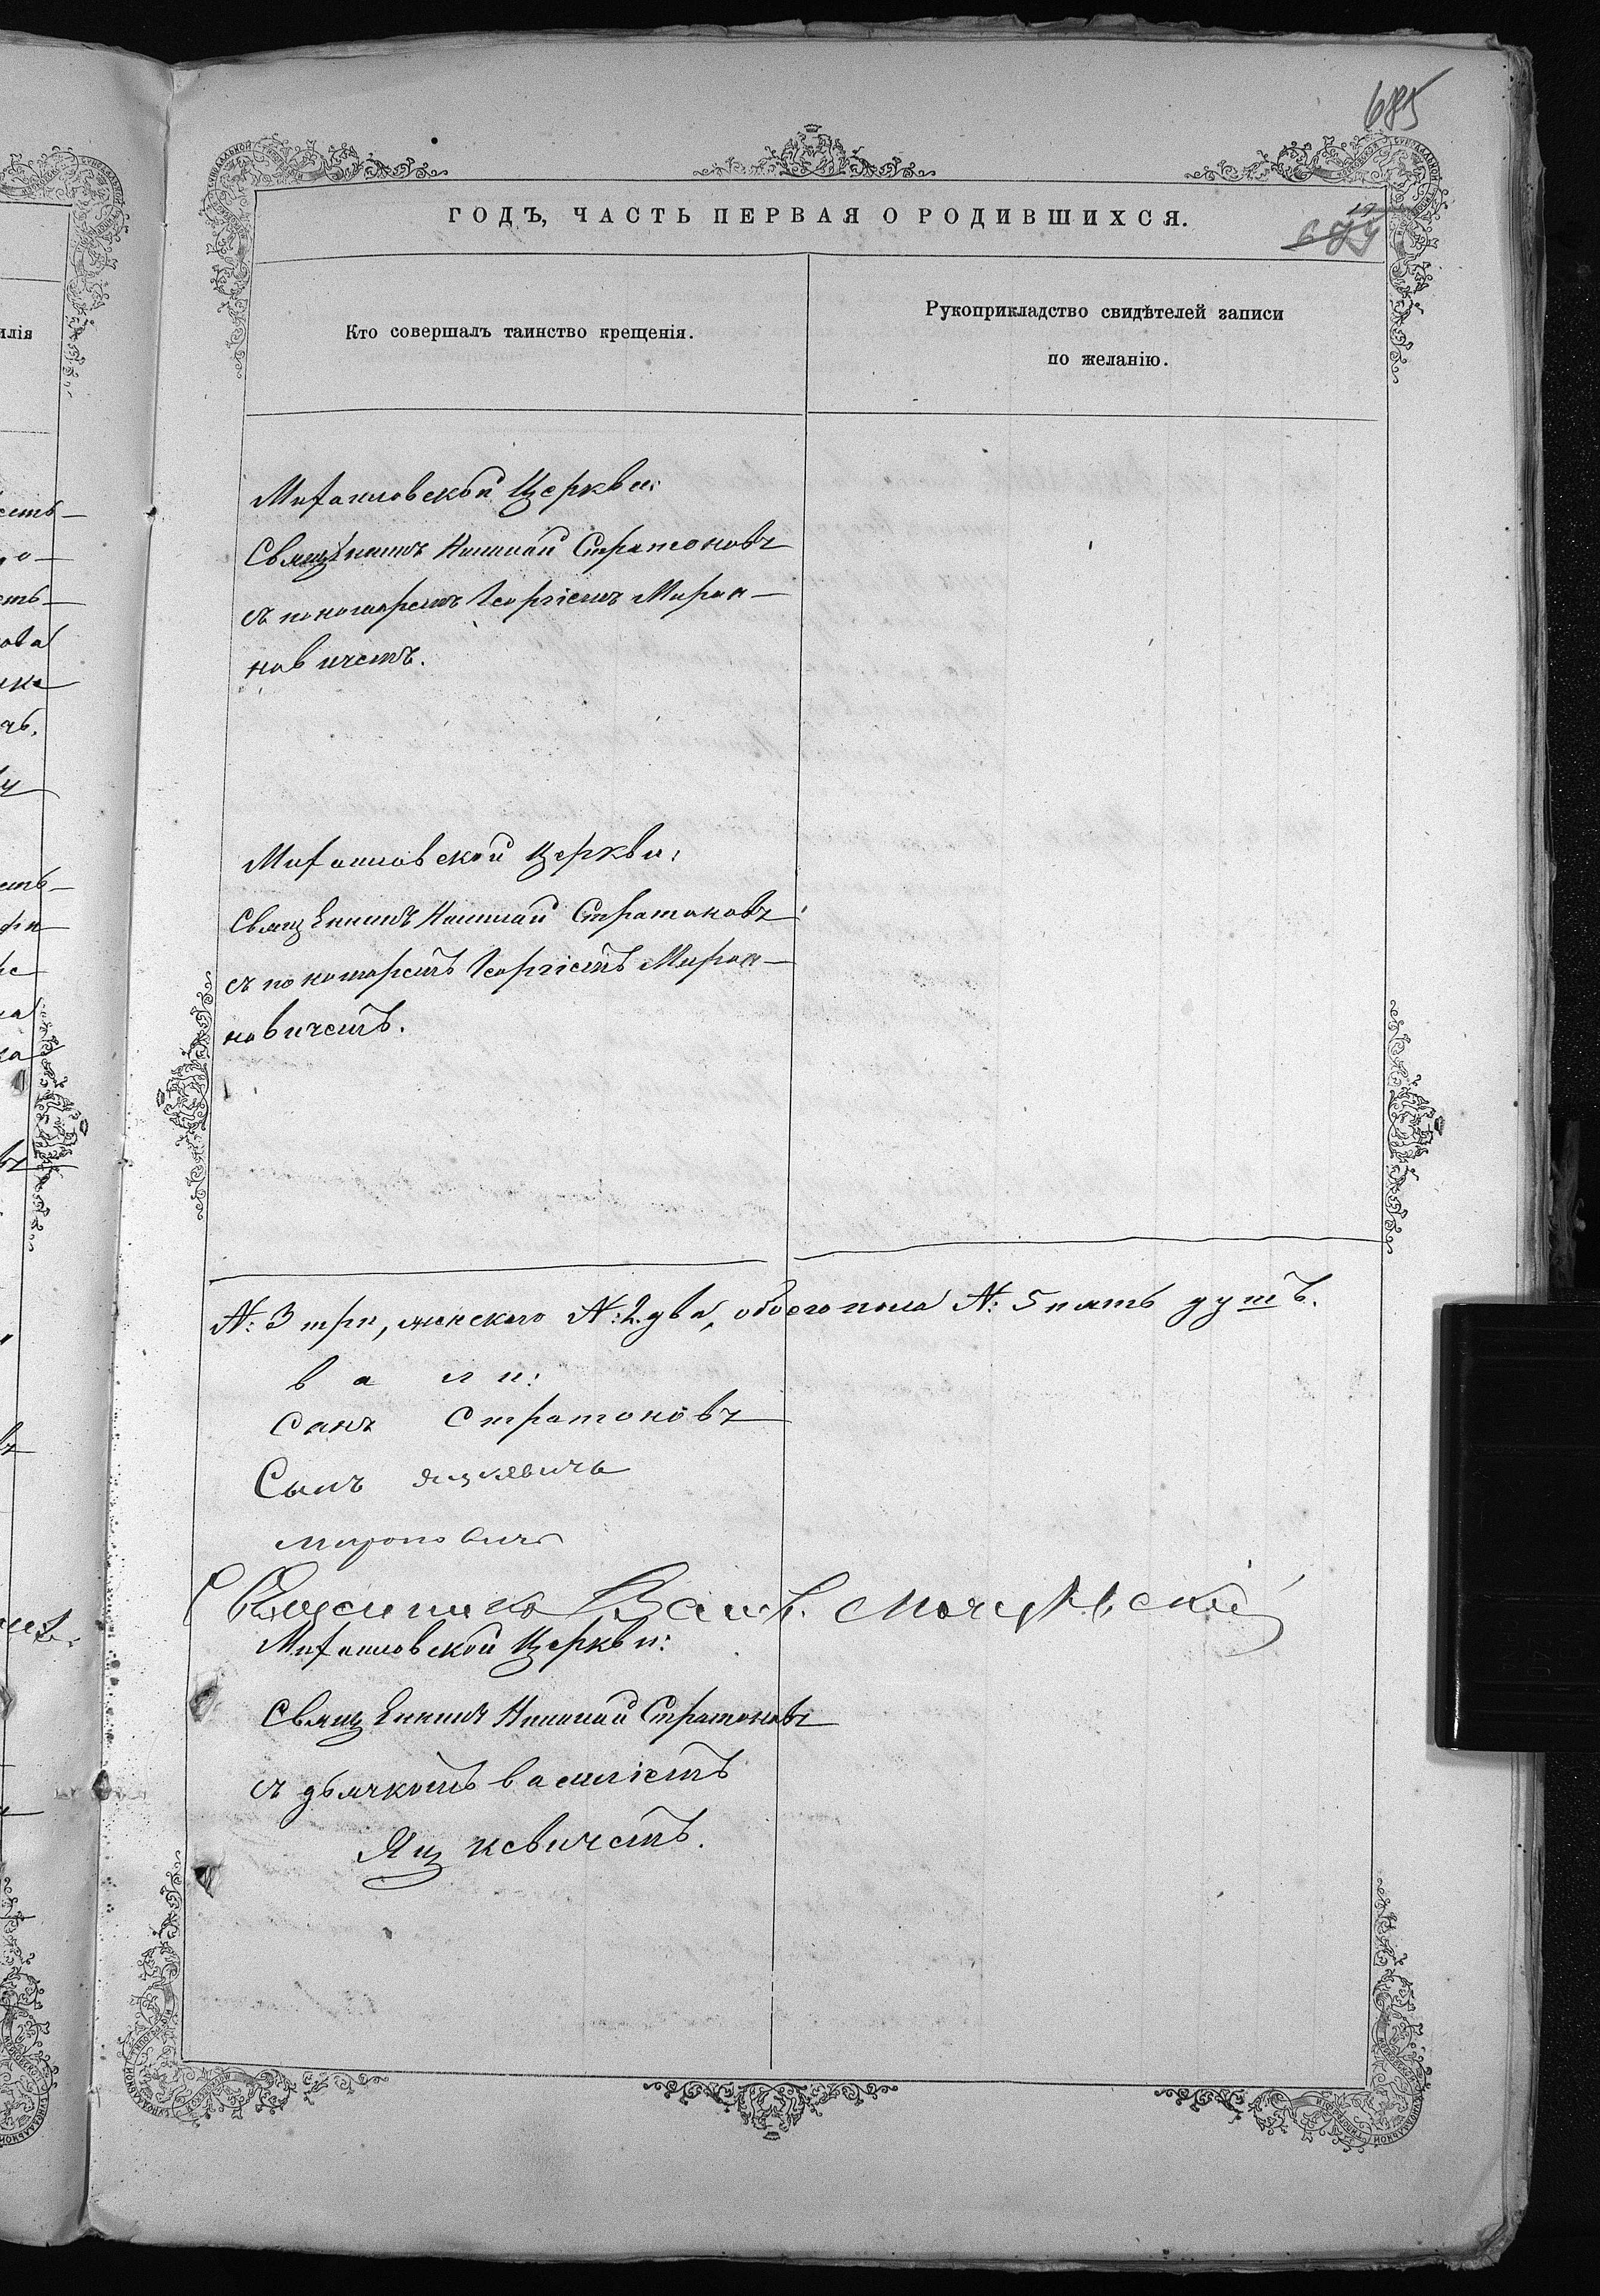 685
ГОДЪ, ЧАСТЬ ПЕРВАЯ О РОДИВШИХСЯ.
Кто совершалъ таинство крещенія.
Рукоприкладство свидѣтелей записи
по желанію.
Михаиловской Церкви:
Священникъ Николай Стратоновъ
съ пономаремъ Георгіемъ Миро-
новичемъ.
Михаиловской Церкви:
Священникъ Николай Стратоновъ
съ пономаремъ Георгіемъ Миро-
новичемъ.
№: 3 три, женскаго №: 2. два, обоего пола №: 5 пять душъ.
в а л и:
Стратоновъ
Яцкевичъ
Мироновичъ
Михаиловской Церкви:
Священникъ Николай Стратоновъ
съ дьячкомъ Василіемъ
Яцкевичемъ.